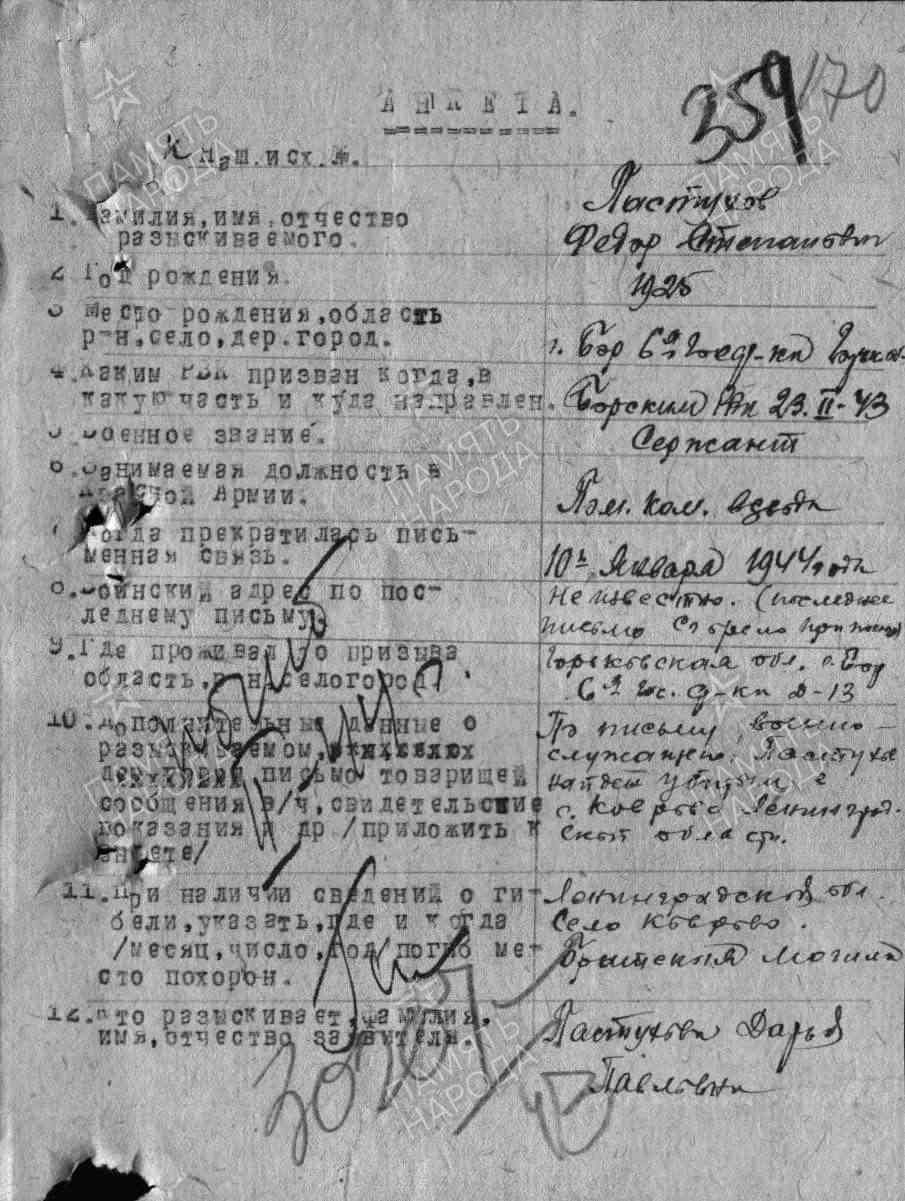 АНКЕТА.
359
170
К Наш.исх.№.
1. Фамилия,имя,отчество
разыскиваемого.
Пастухов
Федор Степанович
2 Год рождения.
1925
3 Место рождения,область
р-н,село,дер.город.
г. Бор 6й Госф-ки
4. Каким РВК призван когда,в
какую часть и куда направлен.
Борским РВК 23.II-43
5 Военное звание.
Сержант
6. Занимаемая должность в
Красной Армии.
Пом. ком. взвода
Когда прекратилась пись-
менная связь.
10го Января 1944 года
8. Воинский адрес по пос-
леднему письму.
Неизвестно. (последнее
письмо
9. Где проживал до призыва
область,р-н,село город.
Горьковская обл. г. Бор
6й Гос. ф-ки д-13
10. Дополнительные данные о
разыскиваемом,
письмо товарищей
сообщения в/ч,свидетельские
показания и др /приложить к
анкете/
По письму военно-
служащего. Пастухов
найден убитым в
с. Коерово Ленинград-
ской области.
11. При наличии сведений о ги-
бели,указать,где и когда
/месяц,число,год/погиб ме-
сто похорон.
Ленинградской обл.
Село Коерово.
Братская могила
12. Кто разыскивает,фамилия,
имя,отчество заявителя.
Пастухова Дарья
Павловна
ПАМЯТЬ
НАРОДА
ПАМЯТЬ
НАРОДА
ПАМЯТЬ
НАРОДА
ПАМЯТЬ
НАРОДА
ПАМЯТЬ
НАРОДА
ПАМЯТЬ
НАРОДА